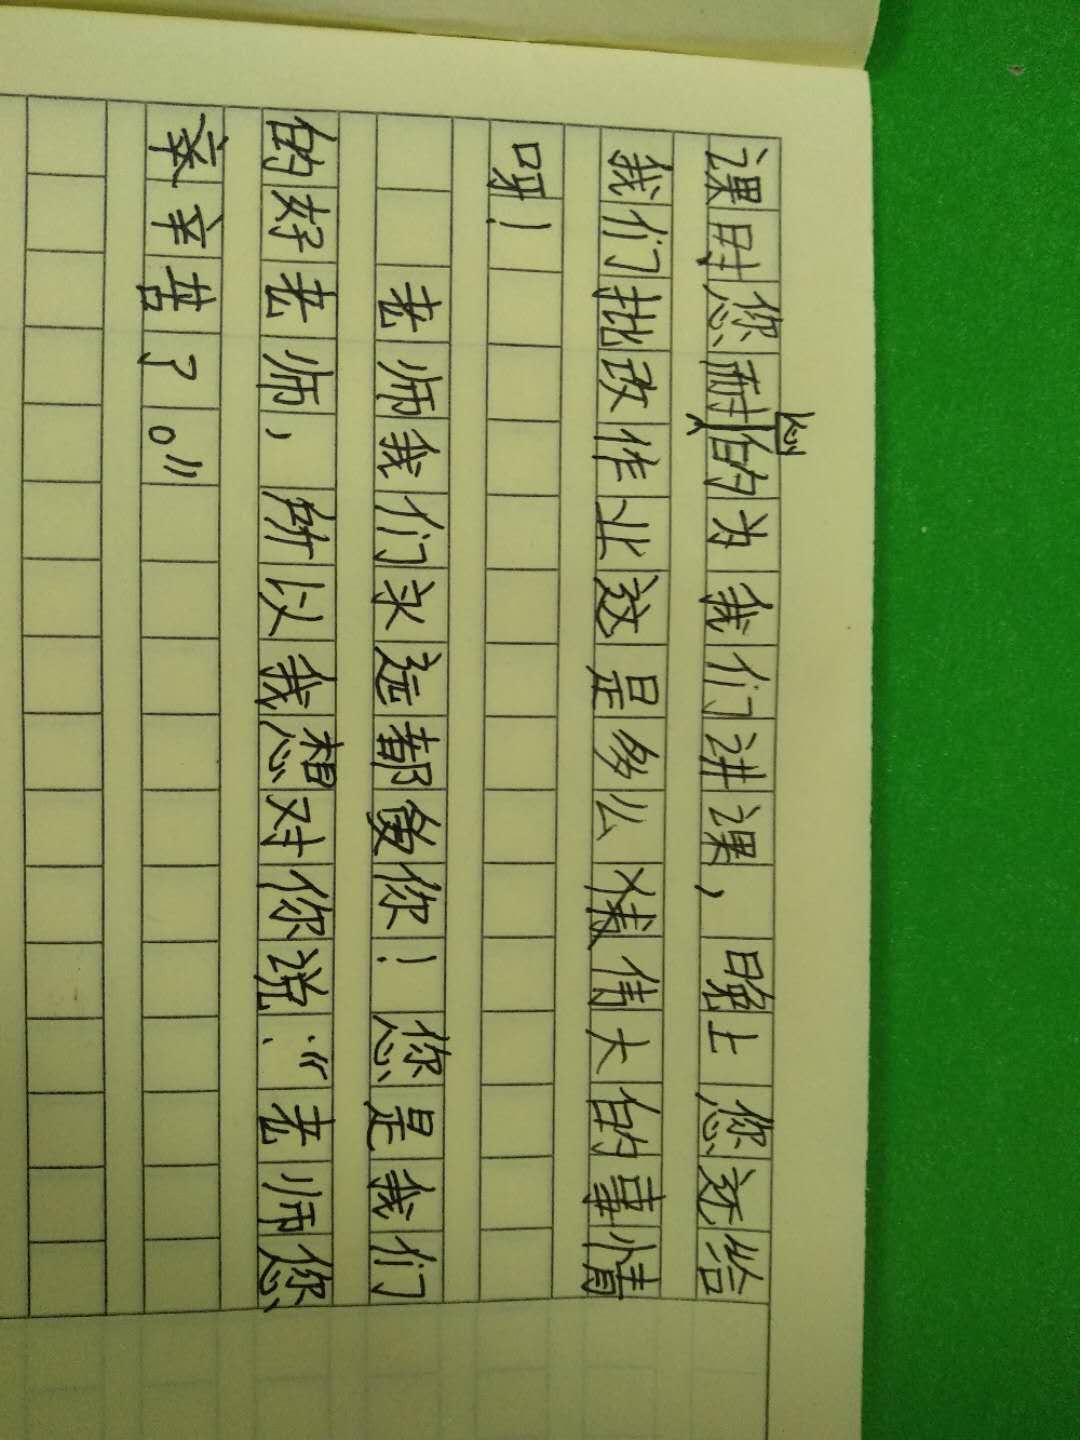 课时您耐心的为我们讲课，晚上您还给
我们批改作业这是多么伟大的事情
呀！
老师我们永远都爱你！您是我们
的好老师，所以我想对你说：“老师您
辛苦了。”